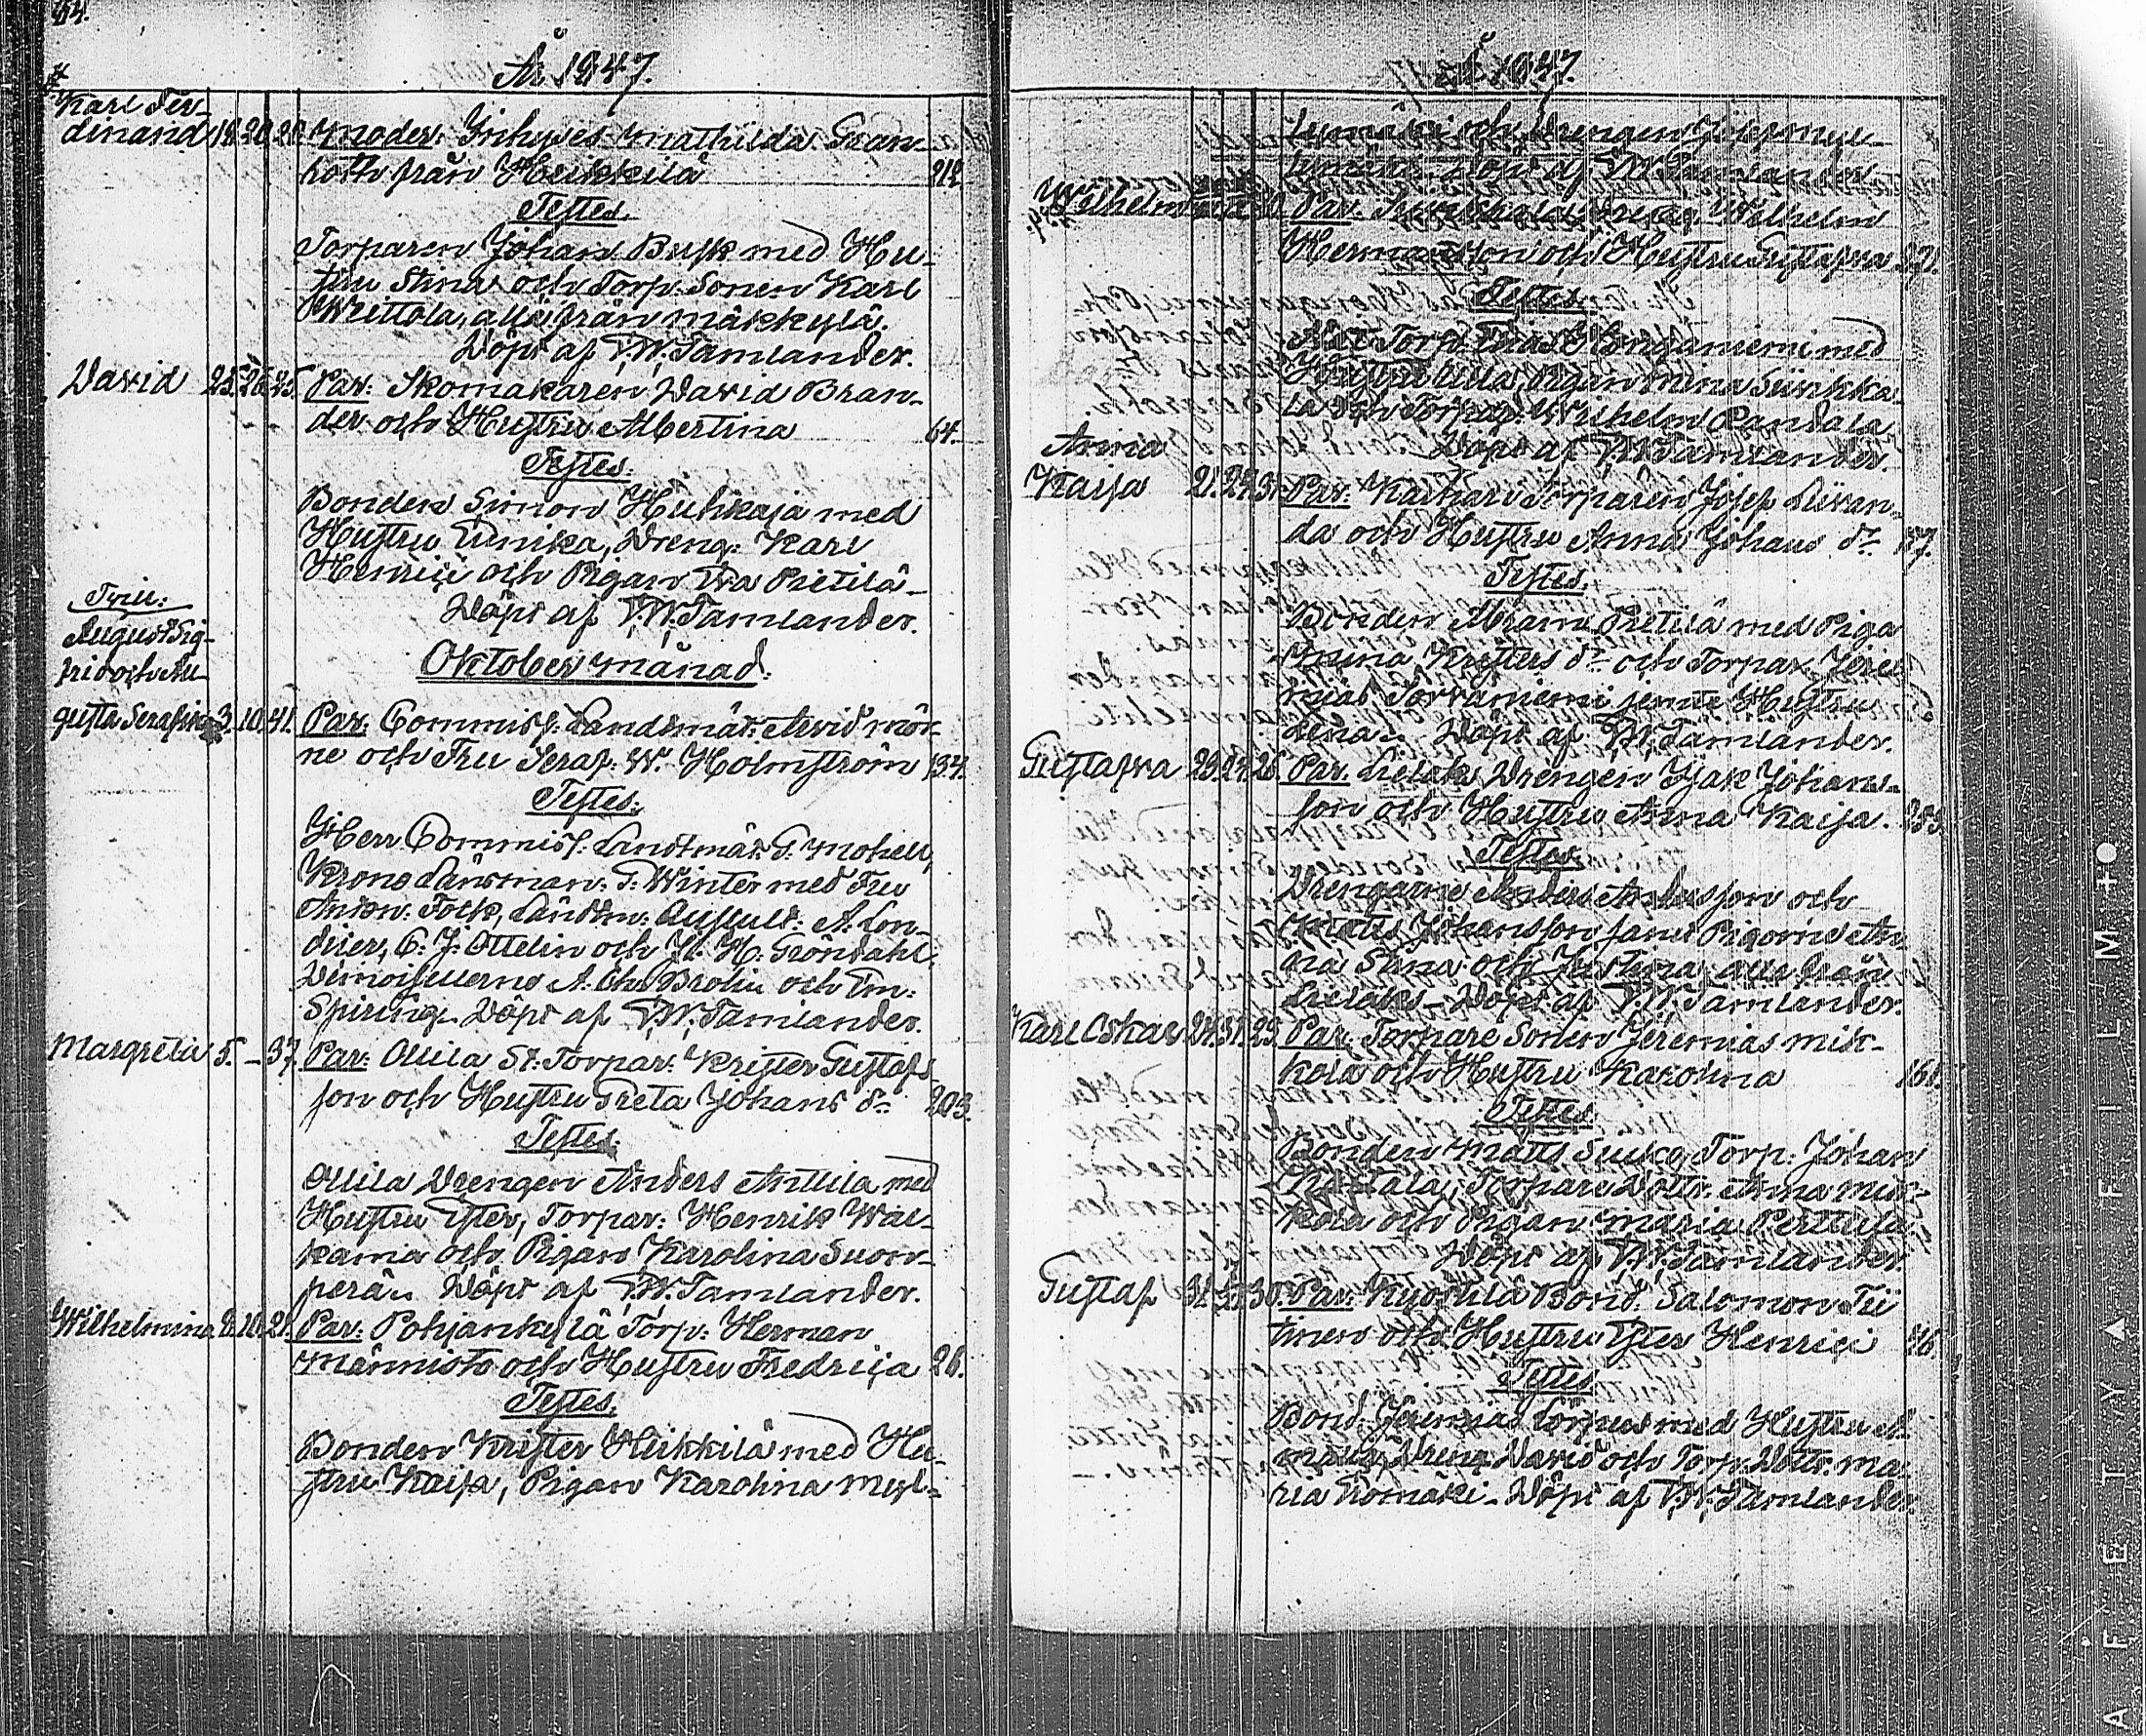 64.
År 1847.
Karl Fer-
dinand 18. 20. 20. Moder: Inhyses Mathilda Gran-
roth från Heikkilä 212
Testes.
Torparen Johan Busk med Hu-
stru Stina och Torp. Sonen Karl
Wäittola, alla från Mäkkylä.
Döpt af T. W. Tamlander.
David 25. 26. 25. Par: Skomakaren David Bran-
der och Hustru Albertina 64.
Testes:
Bonden Simon Huhkaja med
Hustru Ulrika, Dreng: Karl
Henrici och Pigan Eva Pietilä
Döpt af T. W. Tamlander.
Oktober Månad.
August Sig-
frid och Au-
gusta Serafina 3. 10. 41. Par. Commiss. Landtmät. Arvid Mör-
ne och Fru Seraf. W. Holmström 134.
Testes:
Herr Commiss. Landtmät. G. Mohell,
Krono Länsman. G. Winter med Fru
Landtm: Auscult. A. Lon-
C. J. Ottelin och H. Gröndahl,
Demoisellerna A. Ch. Brolin och Em.
Spiring. Döpt af T. W. Tamlander.
Margreta 5. - 37. Par: Ollila St. Torpar: Krister Gustafs-
son och Hustru Greta Johans dr 203.
Testes:
Ollila Drengen Anders Anttila med
Hustru Ester, Torpar: Henrik Wal-
kama och Pigan Karolina Suon-
perä. Döpt af T. W. Tamlander.
Wilhelmina 8. 10. 21. Par: Pohjankylä Torp: Herman
Männistö och Hustru Fredrica 26.
Testes.
Bonden Krister Heikkilä med Hu-
stru Kaisa, Pigan Karolina Myl-
År 1847.
lymäki och Drengen Myl-
lymäki. Döpt af T. W. Tamlander
Wilhelm Par. Dreng. Wilhelm
Hermansson och Hustru Gustafva 221.
Testes.
Torp. Elias Honganiemi med
Hustru Ulla, Pigan Mina Siirikka-
la och Wilhelm Randala
Döpt af T. W. Tamlander.
Anna
Kaisa 21. 24. 31. Par: Torparen Josef Liivan-
da och Hustru Anna Johans dr 177.
Testes.
Bonden Abram Pietilä med Piga
Anna Kristers dr och Torpar. Jere-
mias Torvaniemi jemte Hustru
Lena. Döpt af T. W. Tamlander.
Gustafva 23. 24. 26. Par. Lielaks Drengen Isak Johans-
son och Hustru Anna Kaisa. 255.
Testes.
Drengarne Anders Andersson och
Matts Johansson samt Pigorne An-
na Stina och Justina, alla från
Lielaks. Döpt af T. W. Tamlander.
Karl Oskar 24. 31. 23. Par: Torpare Sonen Jeremias Mik-
kola och Hustru Karolina 161.
Testes.
Bonden Matts Torp: Johan
Torpare Dottr. Anna Mik-
kola och Pigan Maria Perttula
Döpt af T. W. Tamlander.
Gustaf 31. 30. Par. Kyörtilä Bond. Salomon Tii-
tinen och Hustru Ester Henrici 76.
Testes.
Bond. Jeremias med Hustru A-
manda, Dreng David och Torp. Dottr. Ma-
ria Döpt af T. W. Tamlander.
AFETY ▲ FILM